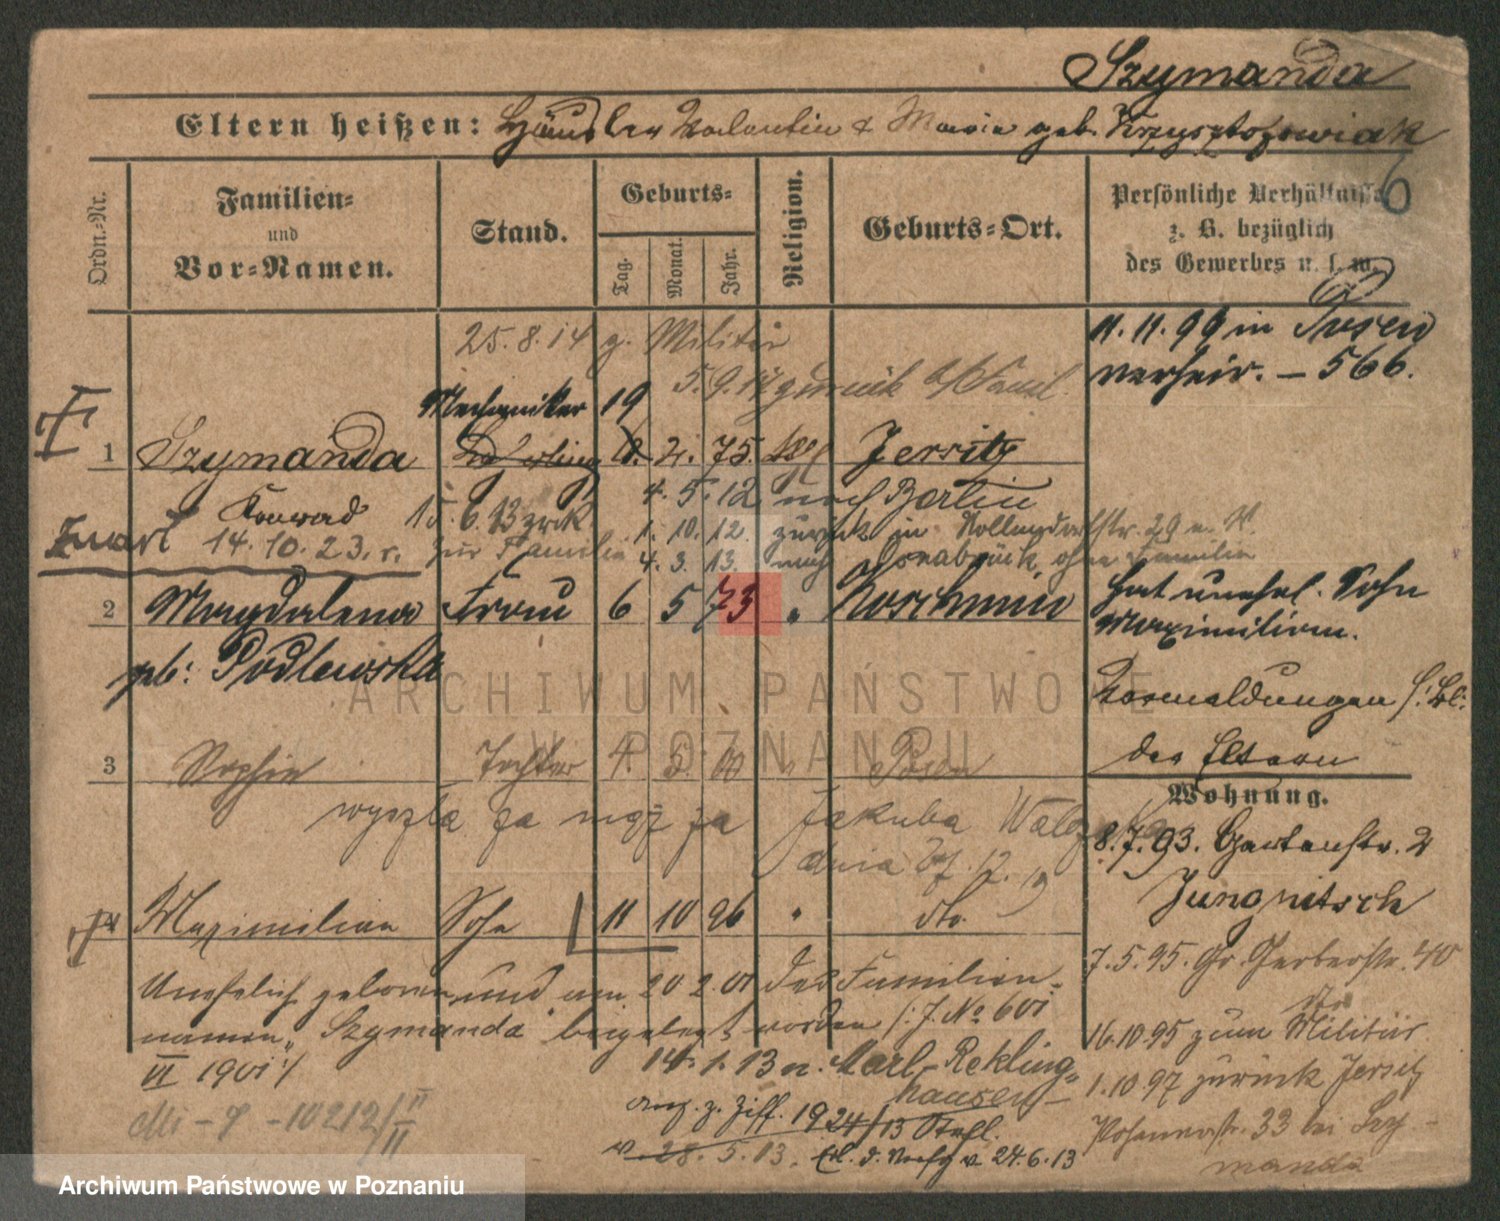 Szymanda
Eltern heißen: Häusler Valentin & Maria geb. Krzysztofowiak
6
Ordn.-Nr.
Familien-
und
Vor-Namen.
Stand.
Geburts-
Tag.
Monat.
Jahr.
Religion.
Geburts-Ort.
Persönliche Verhältnisse
z. B. bezüglich
des Gewerbes u. s. w.
25. 8. 14 z. Militär
11. 11. 99 in Posen
verheir. – 566.
5. 9. 14 zurück
Mechaniker 19
1 Szymanda Lehrling 8. 2. 75. Jersitz
4. 5. 12 nach Berlin
Konrad 15. 6. 13 zrck.
1. 10. 12. zurück in
14. 10. 23. r. zur Familie
4. 3. 13. nach Osnabrück, ohne Familie
2 Magdalena Frau 6 5 73 " Koschmin
geb: Podlewska
hat unehel. Sohn
Maximilian.
Vormeldungen s: Bl:
der Eltern
3 Sophie Tochter 4. 5. 00 " Posen
wyszła za mąż za Jakuba
dnia 27. 12.
Wohnung.
8. 7. 93. Gartenstr. 2
Jungnitsch
4 Maximilian Sohn 11 10 96 " dto.
7. 5. 95. Gr. Gerberstr. 40
Unehelich geboren und am 20. 2. 01 der Familien-
namen „Szymanda" beigelegt worden /: J. No 601
VI 1901 :/
16. 10. 95 zum Militär
14. 1. 13 n. Marl-Rekling-
hausen
1. 10. 97 zurück Jersitz
Mi - 9 - 10212/II
II
Ang. z. Ziff. 1924/13 Stefl.
v 28. 5. 13. Erl. d. v. 24. 6. 13
33 bei Szy-
manda
ARCHIWUM PAŃSTWOWE
W POZNANIU
Archiwum Państwowe w Poznaniu